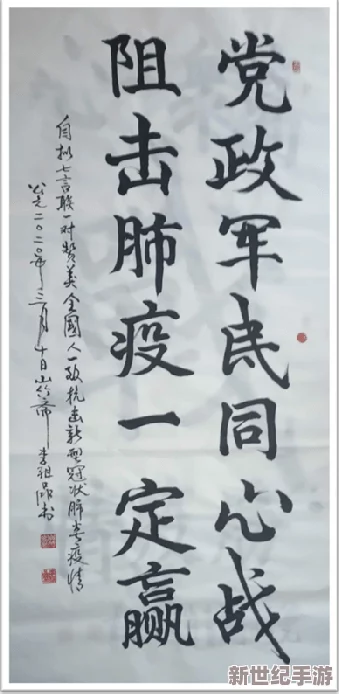 党政军民同心战
阻击肺疫一定赢
自拟七言联一对赞美全国人一致抗击新型冠状肺炎疫情
公元二〇二〇年三月十日山谷斋 李祖
新世纪手游